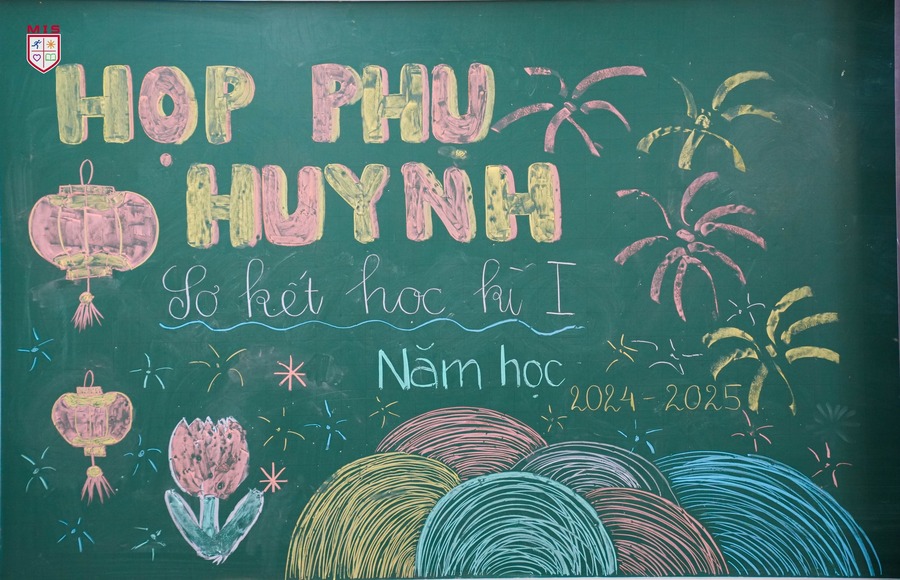 MIS
HỌP PHỤ
HUYNH
Sơ kết học kì I
Năm học
2024 - 2025